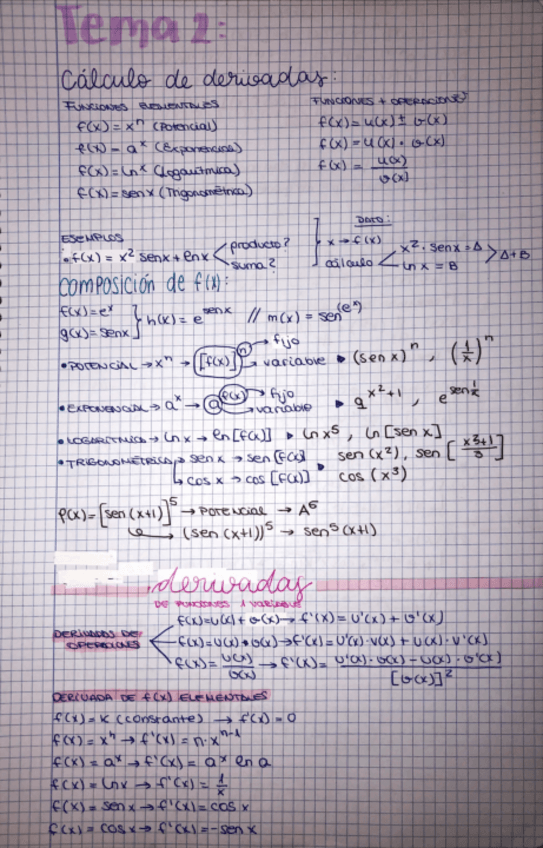 Tema 2:
Cálculo de derivadas:
FUNCIONES ELEMENTALES
f(x) = xⁿ (Potencial)
f(x) = aˣ (Exponencial)
f(x) = lnˣ (Logarítmica)
f(x) = sen x (Trigonométrica)
FUNCIONES + OPERACIONES
f(x) = u(x) ± v(x)
f(x) = u(x) · v(x)
f(x) = u(x) / v(x)
EJEMPLOS
• f(x) = x² senx + ln x < producto? suma?
DATO:
x → f(x)
cálculo < x² · sen x = A
ln x = B > A + B
Composición de f(x):
f(x) = eˣ
g(x) = senx } h(x) = e^senx // m(x) = sen^(eˣ)
• POTENCIAL → xⁿ → [f(x)]ⁿ → fijo → variable ▸ (sen x)ⁿ, (1/x)ⁿ
• EXPONENCIAL → aˣ → a^f(x) → fijo → variable ▸ 9^(x²+1), e^(sen 1/x)
• LOGARÍTMICA → ln x → ln [f(x)] ▸ ln x⁵, ln [sen x]
• TRIGONOMÉTRICA → sen x → sen [f(x)] ▸ sen (x²), sen [(x³+1)/3]
↳ cos x → cos [f(x)] cos (x³)
f(x) = [sen (x+1)]⁵ → POTENCIAL → A⁵
→ (sen (x+1))⁵ → sen⁵ (x+1)
derivadas
DE FUNCIONES 1 VARIABLE
DERIVADAS DE OPERACIONES
f(x) = u(x) + v(x) → f'(x) = u'(x) + v'(x)
f(x) = u(x) · v(x) → f'(x) = u'(x) · v(x) + u(x) · v'(x)
f(x) = u(x) / v(x) → f'(x) = u'(x) · v(x) - u(x) · v'(x) / [v(x)]²
DERIVADA DE f(x) ELEMENTALES
f(x) = K (constante) → f'(x) = 0
f(x) = xⁿ → f'(x) = n · xⁿ⁻¹
f(x) = aˣ → f'(x) = aˣ ln a
f(x) = ln x → f'(x) = 1/x
f(x) = sen x → f'(x) = cos x
f(x) = cos x → f'(x) = - sen x